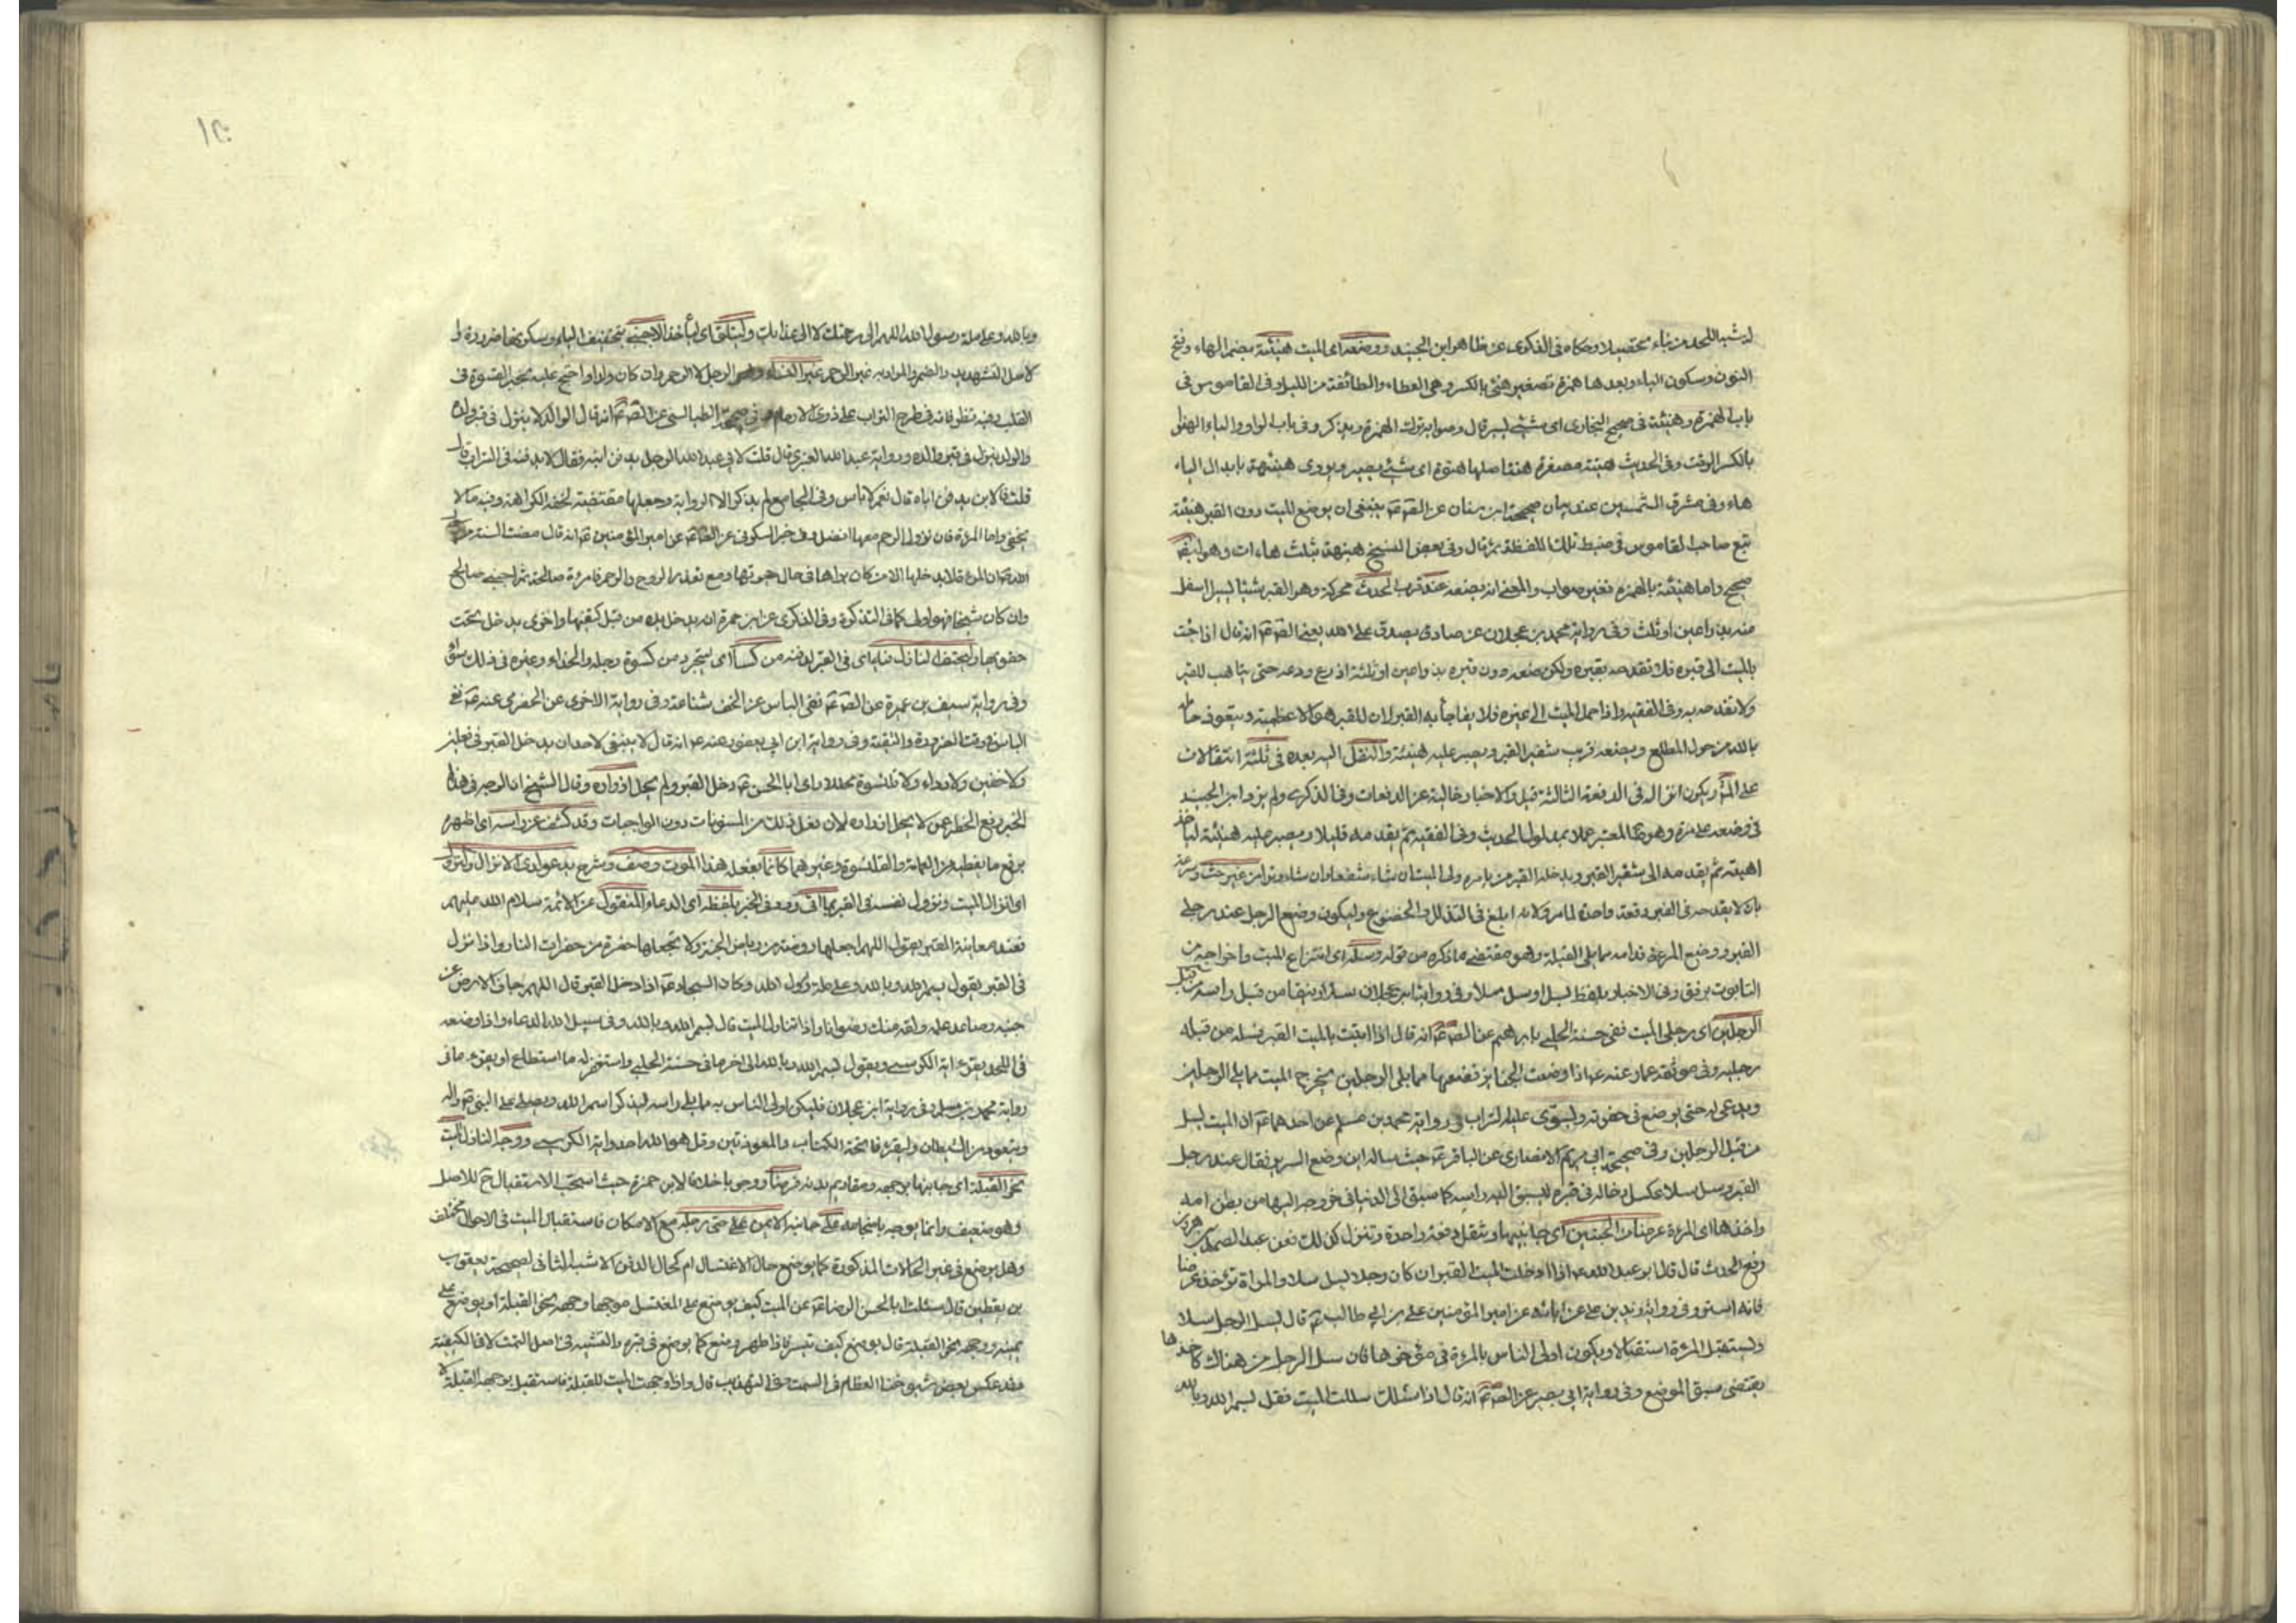 ليشبه اللحد من بناء محتصبلا وحكاه في الذكرى عن ظاهر ابن الجنيد ووضعه اى الميت هنيئة بضم الهاء وفتح
النون وسكون الياء وبعدها همزة تصغير هنئ بالكسر وهى العطاء والطائفة من الليل وفى القاموس فى
باب الهمزة وهنيئة فى صحيح البخارى اى شئ يسير قال وصوابه ترك الهمزة ويذكر وفى باب الواو والياء الهنو
بالكسر الوقت وفى الحديث هنية مصغرة هنة اصلها هنوة اى شئ يسير ويروى هنيهة بابدال الياء
هاء وفى مشرق الشمسين عند بيان صحيحة ابن سنان عن الص ع ينبغى ان يوضع الميت دون القبر هنيئة
تبع صاحب القاموس فى ضبط تلك اللفظة ثم قال وفى بعض النسخ هنيهة بثلث هاءات وهو ايض
صحيح واما هنيئة بالهمزة فغير صواب والمعنى انه يضعه عند قرب الجدث محركة وهو القبر شيئا يسيرا اسفل
منه بذراعين او ثلث وفى رواية محمد بن عجلان عن صادق يصدق على الله يعنى الص ع انه قال اذا جئت
بالميت الى قبره فلا تفدحه بقبره ولكن ضعه دون قبره بذراعين او ثلثة اذرع ودعه حتى يتاهب للقبر
ولا تفدحه به وفى الفقيه واذا حمل الميت الى قبره فلا يفاجأ به القبر لان للقبر اهوالا عظيمة ويتعوذ حامله
بالله من هول المطلع ويضعه قرب شفير القبر ويصبر عليه هنيئة والنقل اليه بعده فى ثلثة انتقالات
على المش ويكون انزاله فى الدفعة الثالثة قيل والاخبار خالية عن الدفعات وفى الذكرى ولم يزد ابن الجنيد
فى وضعه على مرة وهو ظ المعتبر عملا بمدلول الحديث وفى الفقيه ثم يقدمه قليلا ويصبر عليه هنيئة لياخذ
اهبته ثم يقدمه الى شفير القبر ويدخله القبر من يامره ولى الميت ان شاء شفعا وان شاء وترا من غير حث وسرعة
بان لا يفدحه فى القبر دفعة واحدة لما مر ولانه ابلغ فى التذلل والخضوع وليكون وضع الرجل عند رجلى
القبر ووضع المرءة قدامه مما يلى القبلة وهو مقتضى ما ذكره من قوله وسله اى انتزاع الميت واخراجه من
التابوت برفق وفى الاخبار بلفظ يسل او سل سلا وفى رواية ابن عجلان سله رفيقا من قبل راسه من قبل
الرجلين اى رجلى الميت ففى حسنة الحلبى بابرهيم عن الص ع انه قال اذا اتيت بالميت القبر فسله من قبله
رجليه وفى موثقة عمار عنه ع اذا وضعت الجنازة فضعها مما يلى الرجلين تخرج الميت مما يلى الرجلين
ويدعى له حتى يوضع فى حفرته ويسوى عليه التراب فى رواية محمد بن مسلم عن احدهما ع ان الميت يسل
من قبل الرجلين وفى صحيحة ابى مريم الانصارى عن الباقر ع حيث ساله اين وضع السرير فقال عند رجل
القبر وسل سلا عكس دخاله فى قبره ليسبق اليه راسه كما سبق الى الدنيا فى خروجه اليها من بطن امه
واخذها اى المرءة عرضا من الجنبين اى جانبيها وتنقل دفعة واحدة وتنزل كذلك فعن عبد الصمد بن هرون
رفع الحديث قال قال ابو عبد الله ع اذا ادخلت الميت القبر ان كان رجلا يسل سلا والمراة تؤخذ عرضا
فانه استر وفى رواية زيد بن على عن ابائه عن امير المؤمنين على بن ابى طالب ع قال يسل الرجل سلا
وتستقبل المرءة استقبالا ويكون اولى الناس بالمرءة فى مؤخرها فان سل الرجل من هناك كاخذها
يقتضى سبق الموضع وفى رواية ابى بصير عن الص ع انه قال اذا سللت الميت فقل بسم الله وبالله
وبالله وعلى ملة رسول الله اللهم الى رحمتك لا الى عذابك وليتلق اى ليأخذ الاجنبى بتخفيف الياء وسكونها ضرورة و
لاصل التشهديد والضم والمراد به غير الرحم غير النساء وهو الرجل لا الرحم وان كان ولدا واحتج عليه بخبر القسوة فى
القلب وفيه نظر فانه فى طرح التراب على ذوى الارحام الطيالسى عن الص ع انه قال الوالد لا ينزل فى قبر ولده
والولد ينزل فى قبر والده ورواية عبد الله العنبرى قال قلت لابى عبد الله الرجل يدفن ابنه فقال لا يدفنه فى التراب قال
قلت فالابن يدفن اباه قال نعم لا باس وفى الجامع لم يذكر الا الرواية وجعلها مقتضية لخفة الكراهة وفيه ما لا
يخفى واما المرءة فان نزول الرحم معها افضل وفى خبر السكونى عن الص ع عن امير المؤمنين ع انه قال مضت السنة من
الله ص ان المرءة لا يدخلها الا من كان يراها فى حال حيوتها ومع تعذر الزوج والرحم فامرءة صالحة ثم اجنبى صالح
وان كان شيخا فهو اولى كما فى التذكرة وفى الذكرى عن ابن حمزة انه يدخل يده من قبل كتفيها واخرى يدخل تحت
حقويها وليحتف النازل من كسا اى يتجرد من كسوة رجله والحذاء وغيره فى ذلك سوا
وفى رواية سيف بن عميرة عن الص ع نفى الباس عن الخف شناعة وفى رواية الاخرى عن الحضرمى عنه ع نفى
الباس وقت الضرورة والتقية وفى رواية ابن ابى يعفور عنه ع انه قال لا ينبغى لاحد ان يدخل القبر فى نعلين
ولا خفين ولا رداء ولا قلنسوة محللا راى ابا الحسن ع دخل القبر ولم يحل ازراره وقال الشيخ ان الوجه فى هذا
الخبر رفع الحظر عمن لا يحل ازراره لان فعل ذلك من المسنونات دون الواجبات وقد كشف عن راسه اى اظهره
برفع ما يغطيه من العمامة والقلنسوة وغيرهما كانما يفعله هذا الموت وصف وشرح يدعو لدى الانزال والنزول
اى انزال الميت ونزول نفسه فى القبر بما اتى وورد فى الخبر بلفظه اى الدعاء المنقول عن الائمة سلام الله عليهم
فعند معاينة القبر يقول اللهم اجعلها روضة من رياض الجنة ولا تجعلها حفرة من حفرات النار واذا نزل
فى القبر يقول بسم الله وبالله وعلى ملة رسول الله وكان السجاد ع اذا دخل القبر قال اللهم جاف الارض عن
جنبه وصاعد عمله ولقه منك رضوانا واذا تناول الميت قال بسم الله وبالله وفى سبيل الله الدعاء واذا وضعه
فى اللحد يقرء اية الكرسى ويقول بسم الله وبالله الى اخر ما فى حسنة الحلبى واستغفر له ما استطاع او يقرء ما فى
رواية محمد بن مسلم وفى رواية ابن عجلان فليكن اولى الناس به مما يلى راسه ليذكر اسم الله ويصلى على النبى ص واله
ويتعوذ من الشيطان وليقرء فاتحة الكتاب والمعوذتين وقل هو الله احد واية الكرسى ووجه النازل الميت
نحو القبلة اى جانبها بوجهه ومقاديم بدنه فرضا ووجوبا خلافا لابن حمزة حيث استحب الاستقبال ح للاصل
وهو ضعيف وانما يوجه باضجاعه على جانبه الايمن على حتى رجله مع الامكان فاستقبال الميت فى الاحوال مختلف
وهل يوضع فى غير الحالات المذكورة كما يوضع حال الاغتسال ام كحال الدفن الاشبه الثانى لصحيحة يعقوب
بن يقطين قال سئلت ابا الحسن الرضا ع عن الميت كيف يوضع على المغتسل موجها وجهه نحو القبلة او يوضع على
يمينه ووجهه نحو القبلة قال يوضع كيف تيسر فاذا طهر وضع كما يوضع فى قبره والتشبيه فى اصل السمت لا فى الكيفية
وقد عكس بعض شيوخنا العظام فى السمت وفى التهذيب قال واذا وجهت الميت للقبلة فاستقبل بوجهه القبلة لا